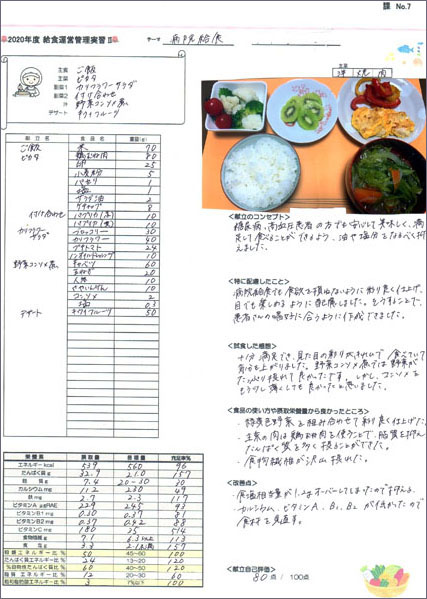 課 No.7
2020年度 給食運営管理実習Ⅱ
テーマ 病院給食
主食 ご飯
主菜 ピカタ
副菜1 カリフラワーサラダ
副菜2 付け合わせ
汁 野菜コンソメ煮
デザート キウイフルーツ
主菜
洋 焼 肉
献立名 食品名 重量(g)
ご飯 米 70
ピカタ 鶏むね肉 80
卵 25
小麦粉 5
パセリ 1
塩 1
サラダ油 2
ケチャップ 8
付け合わせ パプリカ(赤) 10
パプリカ(黄) 10
カリフラワーサラダ ブロッコリー 30
カリフラワー 40
プチトマト 24
10
野菜コンソメ煮 キャベツ 60
玉ねぎ 20
人参 10
さやいんげん 10
コンソメ 2
塩 0.3
デザート キウイフルーツ 50
<献立のコンセプト>
糖尿病、高血圧患者の方でも安心して美味しく、満
足して食べることができるよう、油や塩分をなるべく抑
えました。
<特に配慮したこと>
病院給食でも食欲を損ねないように彩り良く仕上げ、
目でも楽しめるように配慮しました。そうすることで、
患者さんの嗜好に合うように作成できました。
<試食した感想>
十分満足でき、見た目の彩りがきれいで食べていて
気分も上がりました。野菜コンソメ煮では野菜が
たっぷり摂れて良かったです。しかし、コンソメを
もう少し薄くしても良かったと思いました。
<食品の使い方や摂取栄養量から良かったところ>
・緑黄色野菜を組み合わせて彩り良く仕上げた。
・主菜の肉は鶏むね肉を使うことで、脂質を抑え
たんぱく質を多く摂ることができた。
・食物繊維が沢山摂れた。
<改善点>
・食塩相当量が1.2gオーバーしてしまったので抑える。
・カルシウム、ビタミンA、B1、B2が不足だったので
食材を見直す。
<献立自己評価>
80点 / 100点
栄養素 摂取量 目標量 充足率%
エネルギー kcal 539 560 96
たんぱく質 g 32.9 21.0 157
脂質 g 7.4 20~30
カルシウム mg 112 230 49
鉄 mg 2.7 2.3 117
ビタミンA μgRAE 229 245 93
ビタミンB1 mg 0.30 0.37 81
ビタミンB2 mg 0.37 0.42 88
ビタミンC mg 180 35 514
食物繊維 g 7.1 6.3以上 113
食塩 g 3.3 2.1未満 157
穀類エネルギー比 % 50 45~60 100
たんぱく質エネルギー比 % 24 13~20 120
動物性たんぱく質比 % 60 40~50 120
脂質エネルギー比 % 12 20~30 60
飽和脂肪酸エネルギー比 % 3 7%以下 100